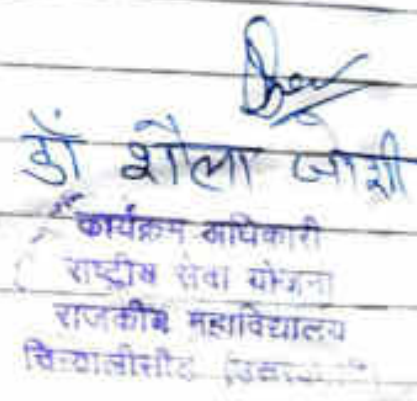 डॉ शैला जोशी
कार्यक्रम अधिकारी
राष्ट्रीय सेवा योजना
राजकीय महाविद्यालय
चिन्यालीसौड़ (उत्तरकाशी)